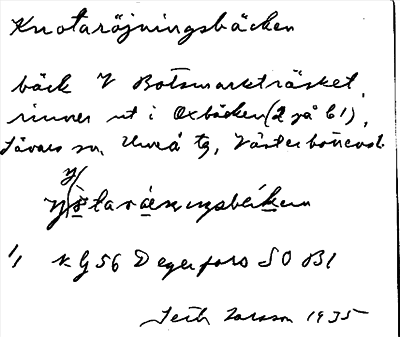 Knotaröjningsbäcken
bäck V Botsmarkträsket,
rinner ut i Oxbäcken (2 på bl),
Sävars sn, Umeå tg, Västerbottens l.
1/1 KG 56 Degerfors SO Bl
Seth Larsson 1935